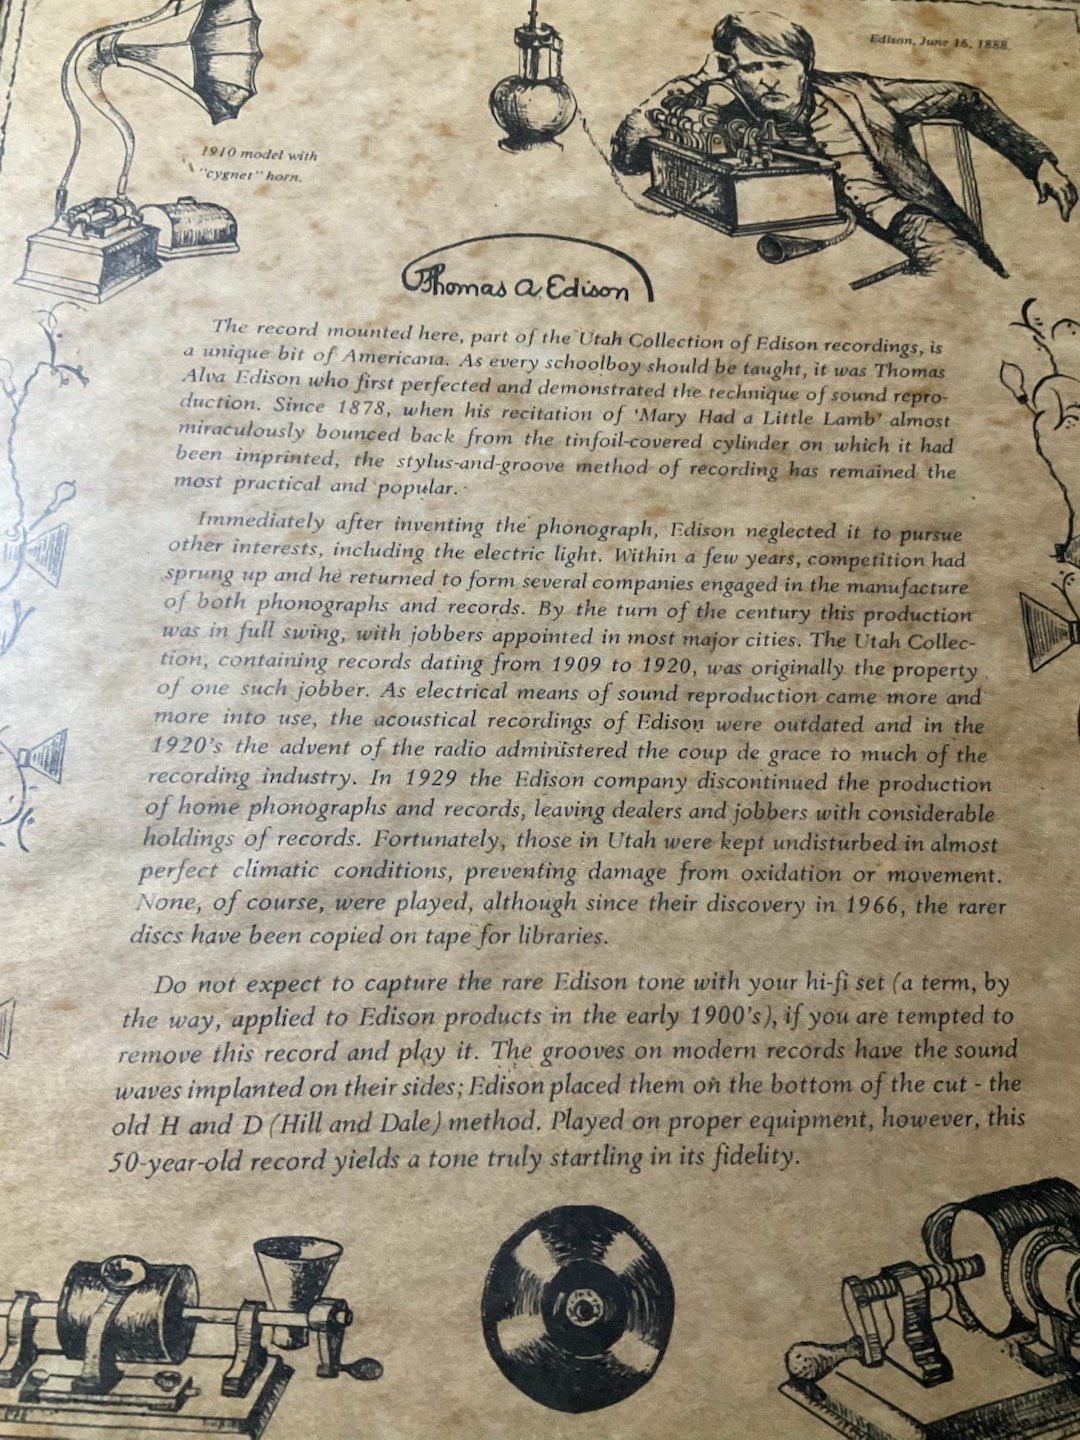 Edison, June 16, 1888.
1910 model with
"cygnet" horn.
Thomas A Edison
The record mounted here, part of the Utah Collection of Edison recordings, is
a unique bit of Americana. As every schoolboy should be taught, it was Thomas
Alva Edison who first perfected and demonstrated the technique of sound repro-
duction. Since 1878, when his recitation of 'Mary Had a Little Lamb' almost
miraculously bounced back from the tinfoil-covered cylinder on which it had
been imprinted, the stylus-and-groove method of recording has remained the
most practical and popular.
Immediately after inventing the phonograph, Edison neglected it to pursue
other interests, including the electric light. Within a few years, competition had
sprung up and he returned to form several companies engaged in the manufacture
of both phonographs and records. By the turn of the century this production
was in full swing, with jobbers appointed in most major cities. The Utah Collec-
tion, containing records dating from 1909 to 1920, was originally the property
of one such jobber. As electrical means of sound reproduction came more and
more into use, the acoustical recordings of Edison were outdated and in the
1920's the advent of the radio administered the coup de grace to much of the
recording industry. In 1929 the Edison company discontinued the production
of home phonographs and records, leaving dealers and jobbers with considerable
holdings of records. Fortunately, those in Utah were kept undisturbed in almost
perfect climatic conditions, preventing damage from oxidation or movement.
None, of course, were played, although since their discovery in 1966, the rarer
discs have been copied on tape for libraries.
Do not expect to capture the rare Edison tone with your hi-fi set (a term, by
the way, applied to Edison products in the early 1900's), if you are tempted to
remove this record and play it. The grooves on modern records have the sound
waves implanted on their sides; Edison placed them on the bottom of the cut - the
old H and D (Hill and Dale) method. Played on proper equipment, however, this
50-year-old record yields a tone truly startling in its fidelity.